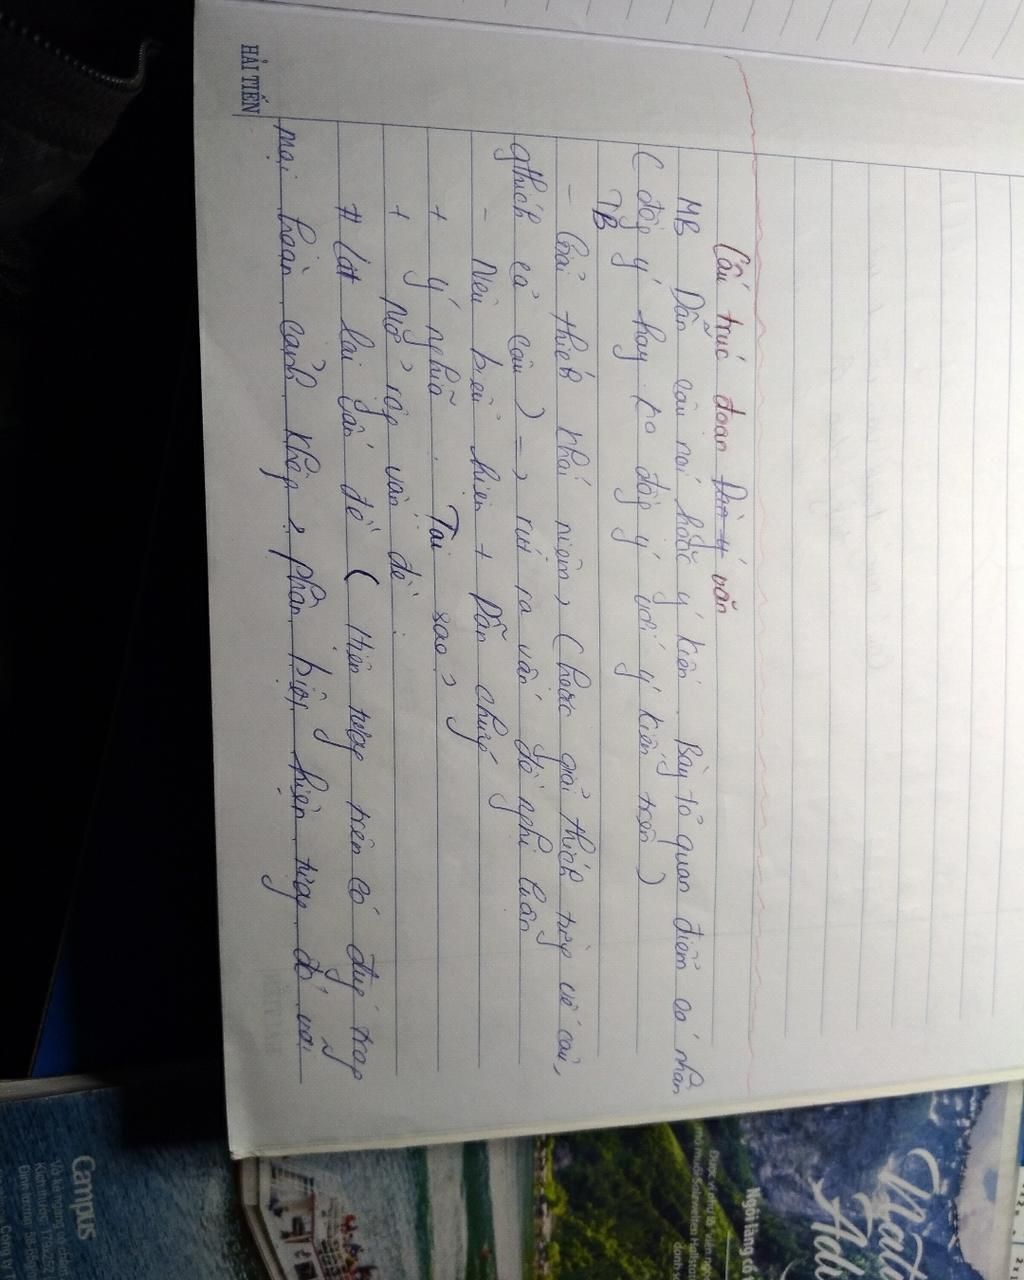 Cấu trúc đoạn Dàn ý văn
MB Dẫn câu nói hoặc ý kiến. Bày tỏ quan điểm cá nhân
( đồg ý hay ko đồg ý với ý kiến trên )
TB
- Giải thích khái niệm, (hoặc giải thích từg vế câu,
gthích cả câu ) -> rút ra vấn đề nghị luận
- Nêu biểu hiện + Dẫn chứg
+ ý nghĩa. Tại sao?
+ Mở rộg vấn đề.
# Lật lại vấn đề ( Hiện tượg trên có đúg trog
mọi hoàn cảnh khôg > phân biệt hiện tượg đó với
HẢI TIẾN
Campus
Ngôi làng cổ